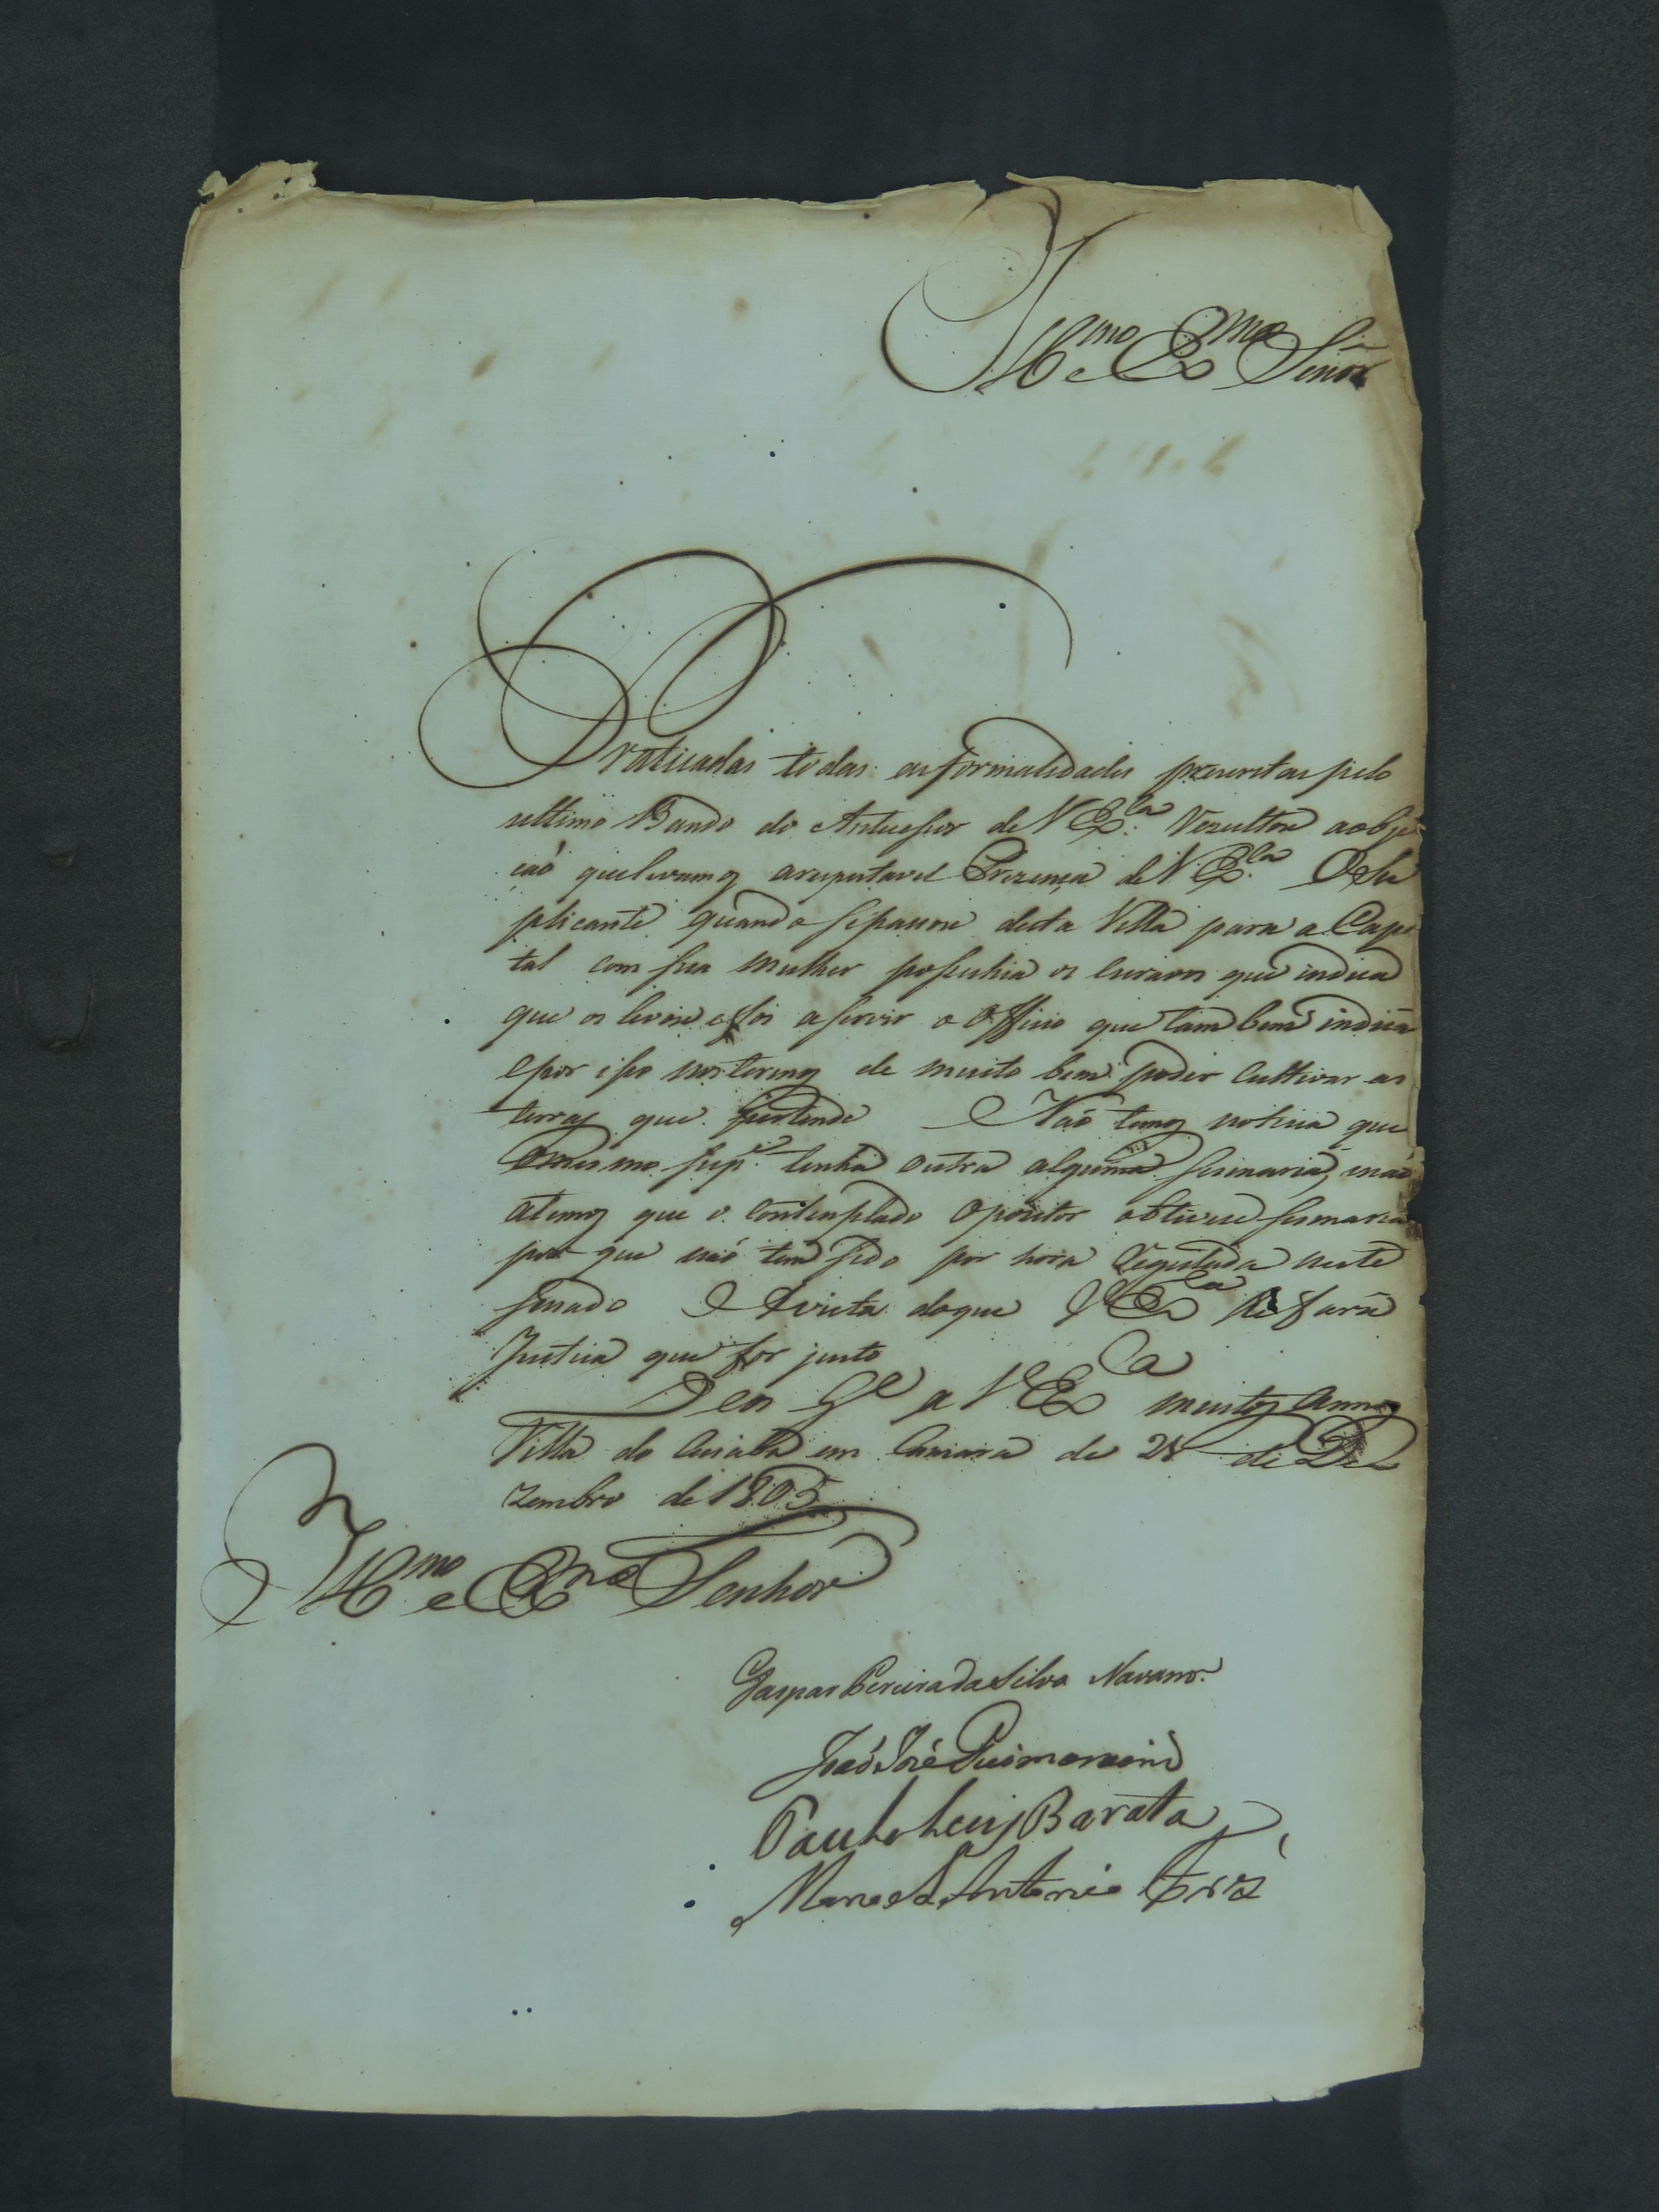 Illmo e Exmo Senor
Praticadas todas as formalidades prescritas pelo
ultimo Bando do Antecessor de V Exca. Rezultou a obje
caõ que levamos a respeitavel Prezença de V. Exca. O Su
plicante quando se passou desta Villa para a Capi
tal com sua mulher possuhia os escravos que indica
que os levou e foi a servir o Officio que tambem indica
e por isso nos termos de muito bem poder cultivar as
terras que pertende Naõ temos noticia que
o mesmo supe. tenha outra alguma sismaria, nao
atemos que o contemplado Opozitor obtivese sismaria
por que naõ tem sido por hora registada neste
senado E Avista do que V Exca fará
Justica que for justo
Deos Ge a V Exca muitos annos
Villa do Cuiaba em Camara de 28 de De
zembro de 1805
Illmo e Exmo Senhor
Gaspar Pereira da Silva Navarro
Joaõ Jozé Guimaraens
Paulo Luis Barata
Manoel Antonio